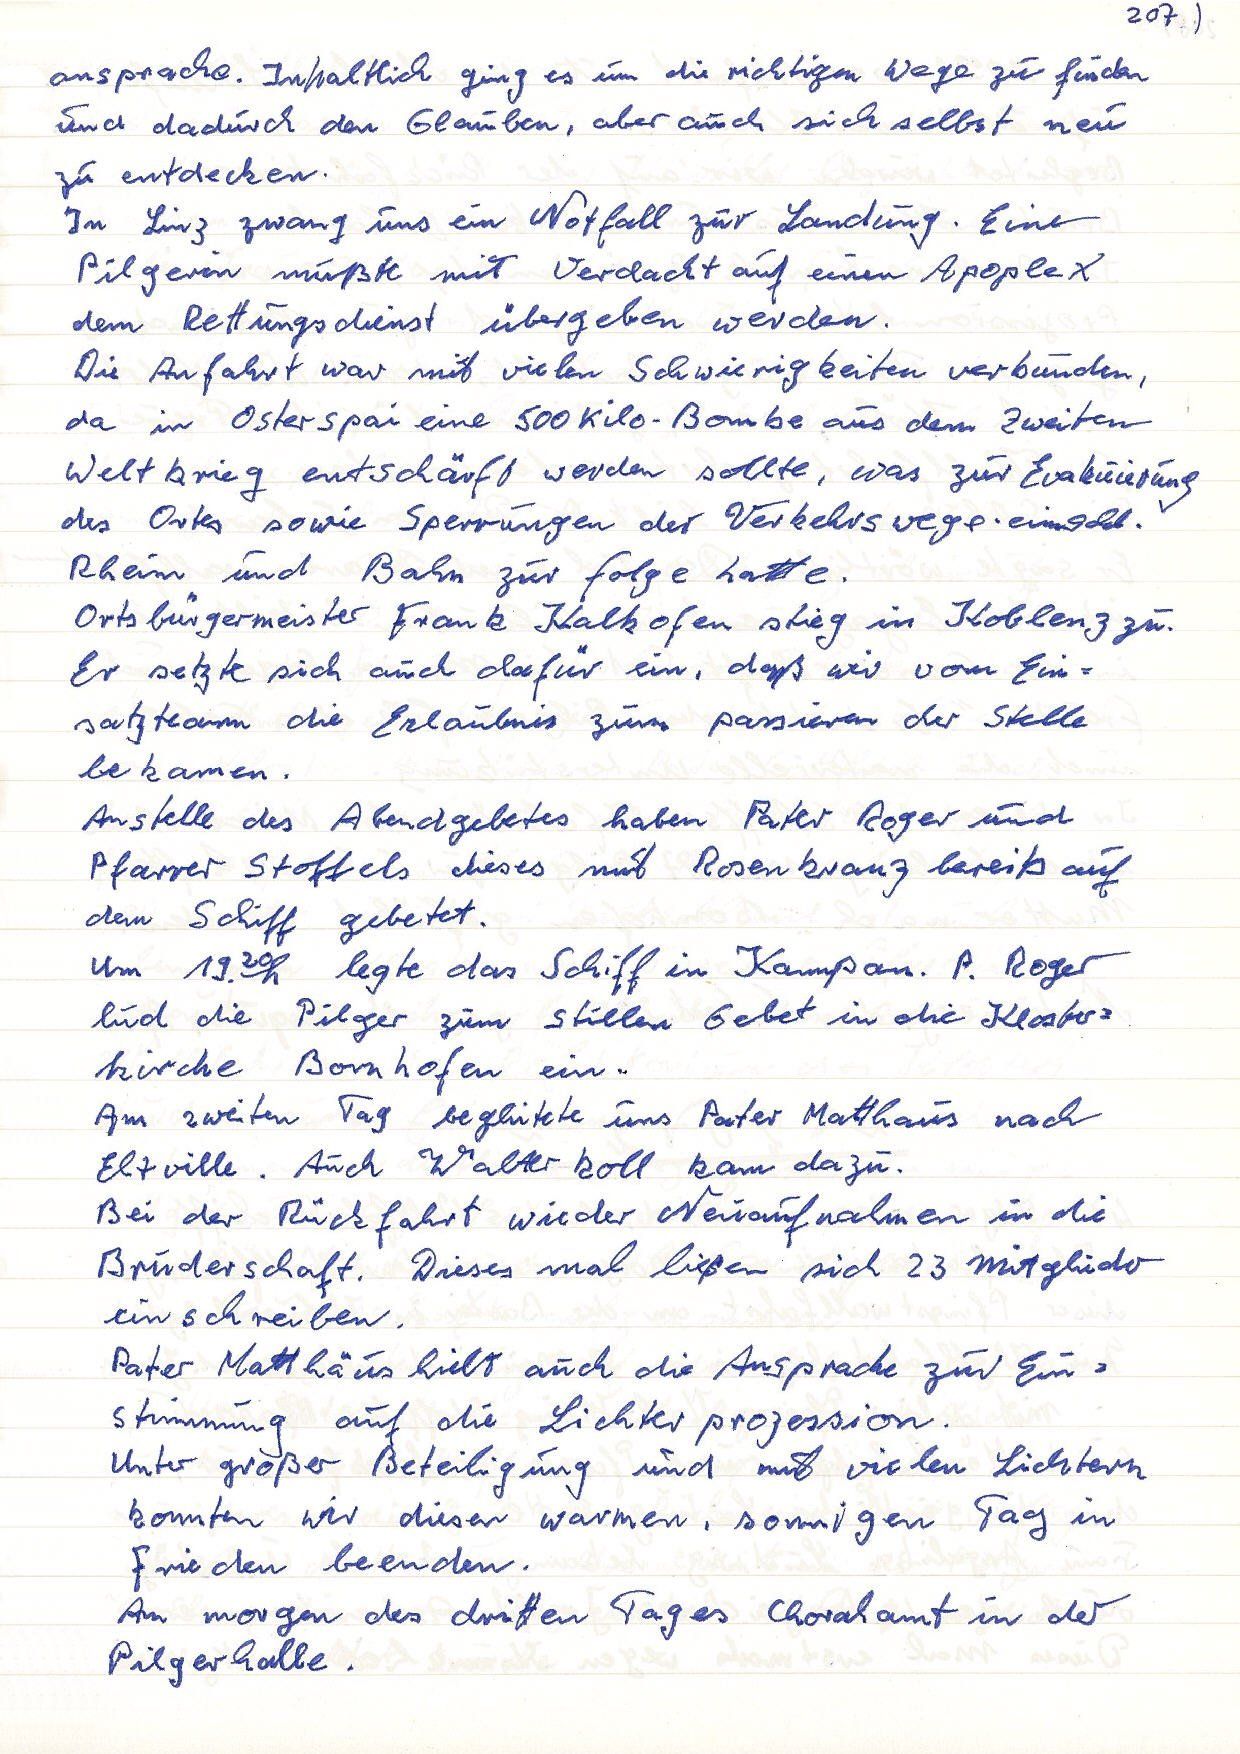 207)
ansprache. Inhaltlich ging es um die richtigen Wege zu finden
und dadurch den Glauben, aber auch sich selbst neu
zu entdecken.
In Linz zwang uns ein Notfall zur Landung. Eine
Pilgerin mußte mit Verdacht auf einen Apoplex
dem Rettungsdienst übergeben werden.
Die Anfahrt war mit vielen Schwierigkeiten verbunden,
da in Osterspai eine 500 Kilo-Bombe aus dem Zweiten
Weltkrieg entschärft werden sollte, was zur Evakuierung
des Ortes sowie Sperrungen der Verkehrswege einschl.
Rhein und Bahn zur folge hatte.
Ortsbürgermeister Frank Kalkofen stieg in Koblenz zu.
Er setzte sich auch dafür ein, daß wir vom Ein=
satzteam die Erlaubnis zum passieren der Stelle
bekamen.
Anstelle des Abendgebetes haben Pater Roger und
Pfarrer Stoffels dieses mit Rosenkranz bereits auf
dem Schiff gebetet.
Um 19.20h legte das Schiff in Kamp an. P. Roger
lud die Pilger zum stillen Gebet in die Kloster=
kirche Bornhofen ein.
Am zweiten Tag begleitete uns Pater Matthäus nach
Eltville. Auch Walter Koll kam dazu.
Bei der Rückfahrt wieder Neuaufnahmen in die
Bruderschaft. Dieses mal ließen sich 23 Mitglieder
einschreiben.
Pater Matthäus hielt auch die Ansprache zur Ein=
stimmung auf die Lichterprozession.
Unter großer Beteiligung und mit vielen Lichtern
konnten wir diesen warmen, sonnigen Tag in
Frieden beenden.
Am morgen des dritten Tages Choralamt in der
Pilgerhalle.